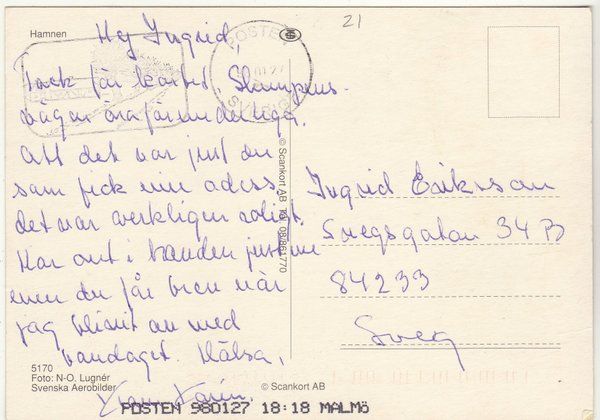 Hamnen
21
Hej Ingrid,
POSTEN
Tack för kortet. Slumpens
vägar äro förunderliga.
Att det var just du
som fick min adress,
det var verkligen roligt.
Har ont i handen just nu
men du får brev när
jag blivit av med
bandaget. Hälsa,
Karin.
Ingrid Eriksson
Svegsgatan 34 B
84233
Sveg
© Scankort AB Tel 08/861770
5170
Foto: N-O. Lugnér
Svenska Aerobilder
© Scankort AB
POSTEN 980127 18:18 MALMÖ